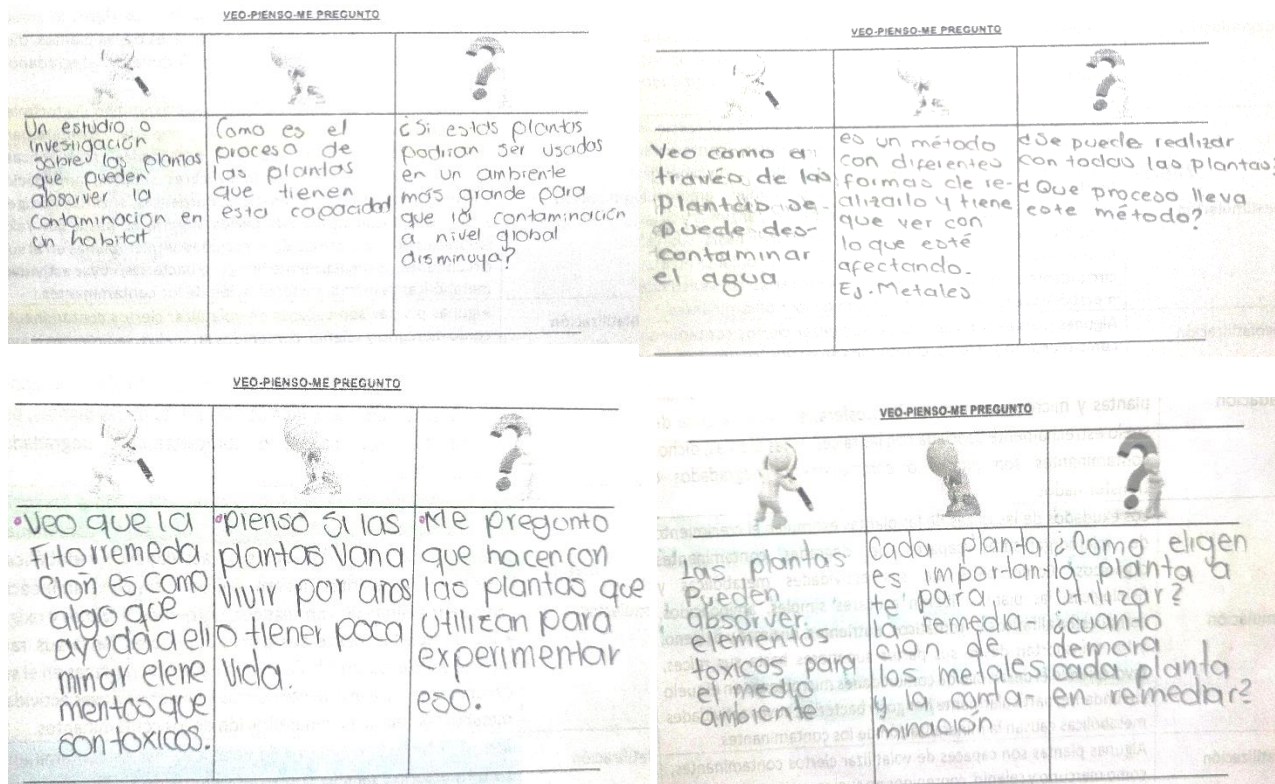 VEO-PIENSO-ME PREGUNTO
Un estudio o
investigación
sobre las plantas
que pueden
absorver la
contaminación en
un habitat
Como es el
proceso de
las plantas
que tienen
esta capacidad
¿Si estas plantas
podrian ser usadas
en un ambiente
más grande para
que la contaminación
a nivel global
disminuya?
VEO-PIENSO-ME PREGUNTO
Veo como a
través de las
plantas se
puede des-
contaminar
el agua
es un método
con diferentes
formas de re-
alizarlo y tiene
que ver con
lo que esté
afectando.
Ej. Metales
¿Se puede realizar
con todas las plantas?
¿Que proceso lleva
este método?
VEO-PIENSO-ME PREGUNTO
Veo que la
Fitorremeda
cion es como
algo que
ayuda a eli
minar eleme
mentos que
son toxicos.
pienso si las
plantas van a
vivir por años
o tienen poca
vida.
Me pregunto
que hacen con
las plantas que
utilizan para
experimentar
eso.
VEO-PIENSO-ME PREGUNTO
plantas
pueden
absorver
elementos
toxicos para
el medio
ambiente
Cada planta
es importan
te para
la remedia-
cion de
los metales
y la conta-
minación
¿Como eligen
la planta a
utilizar?
¿cuanto
demora
cada planta
en remediar?